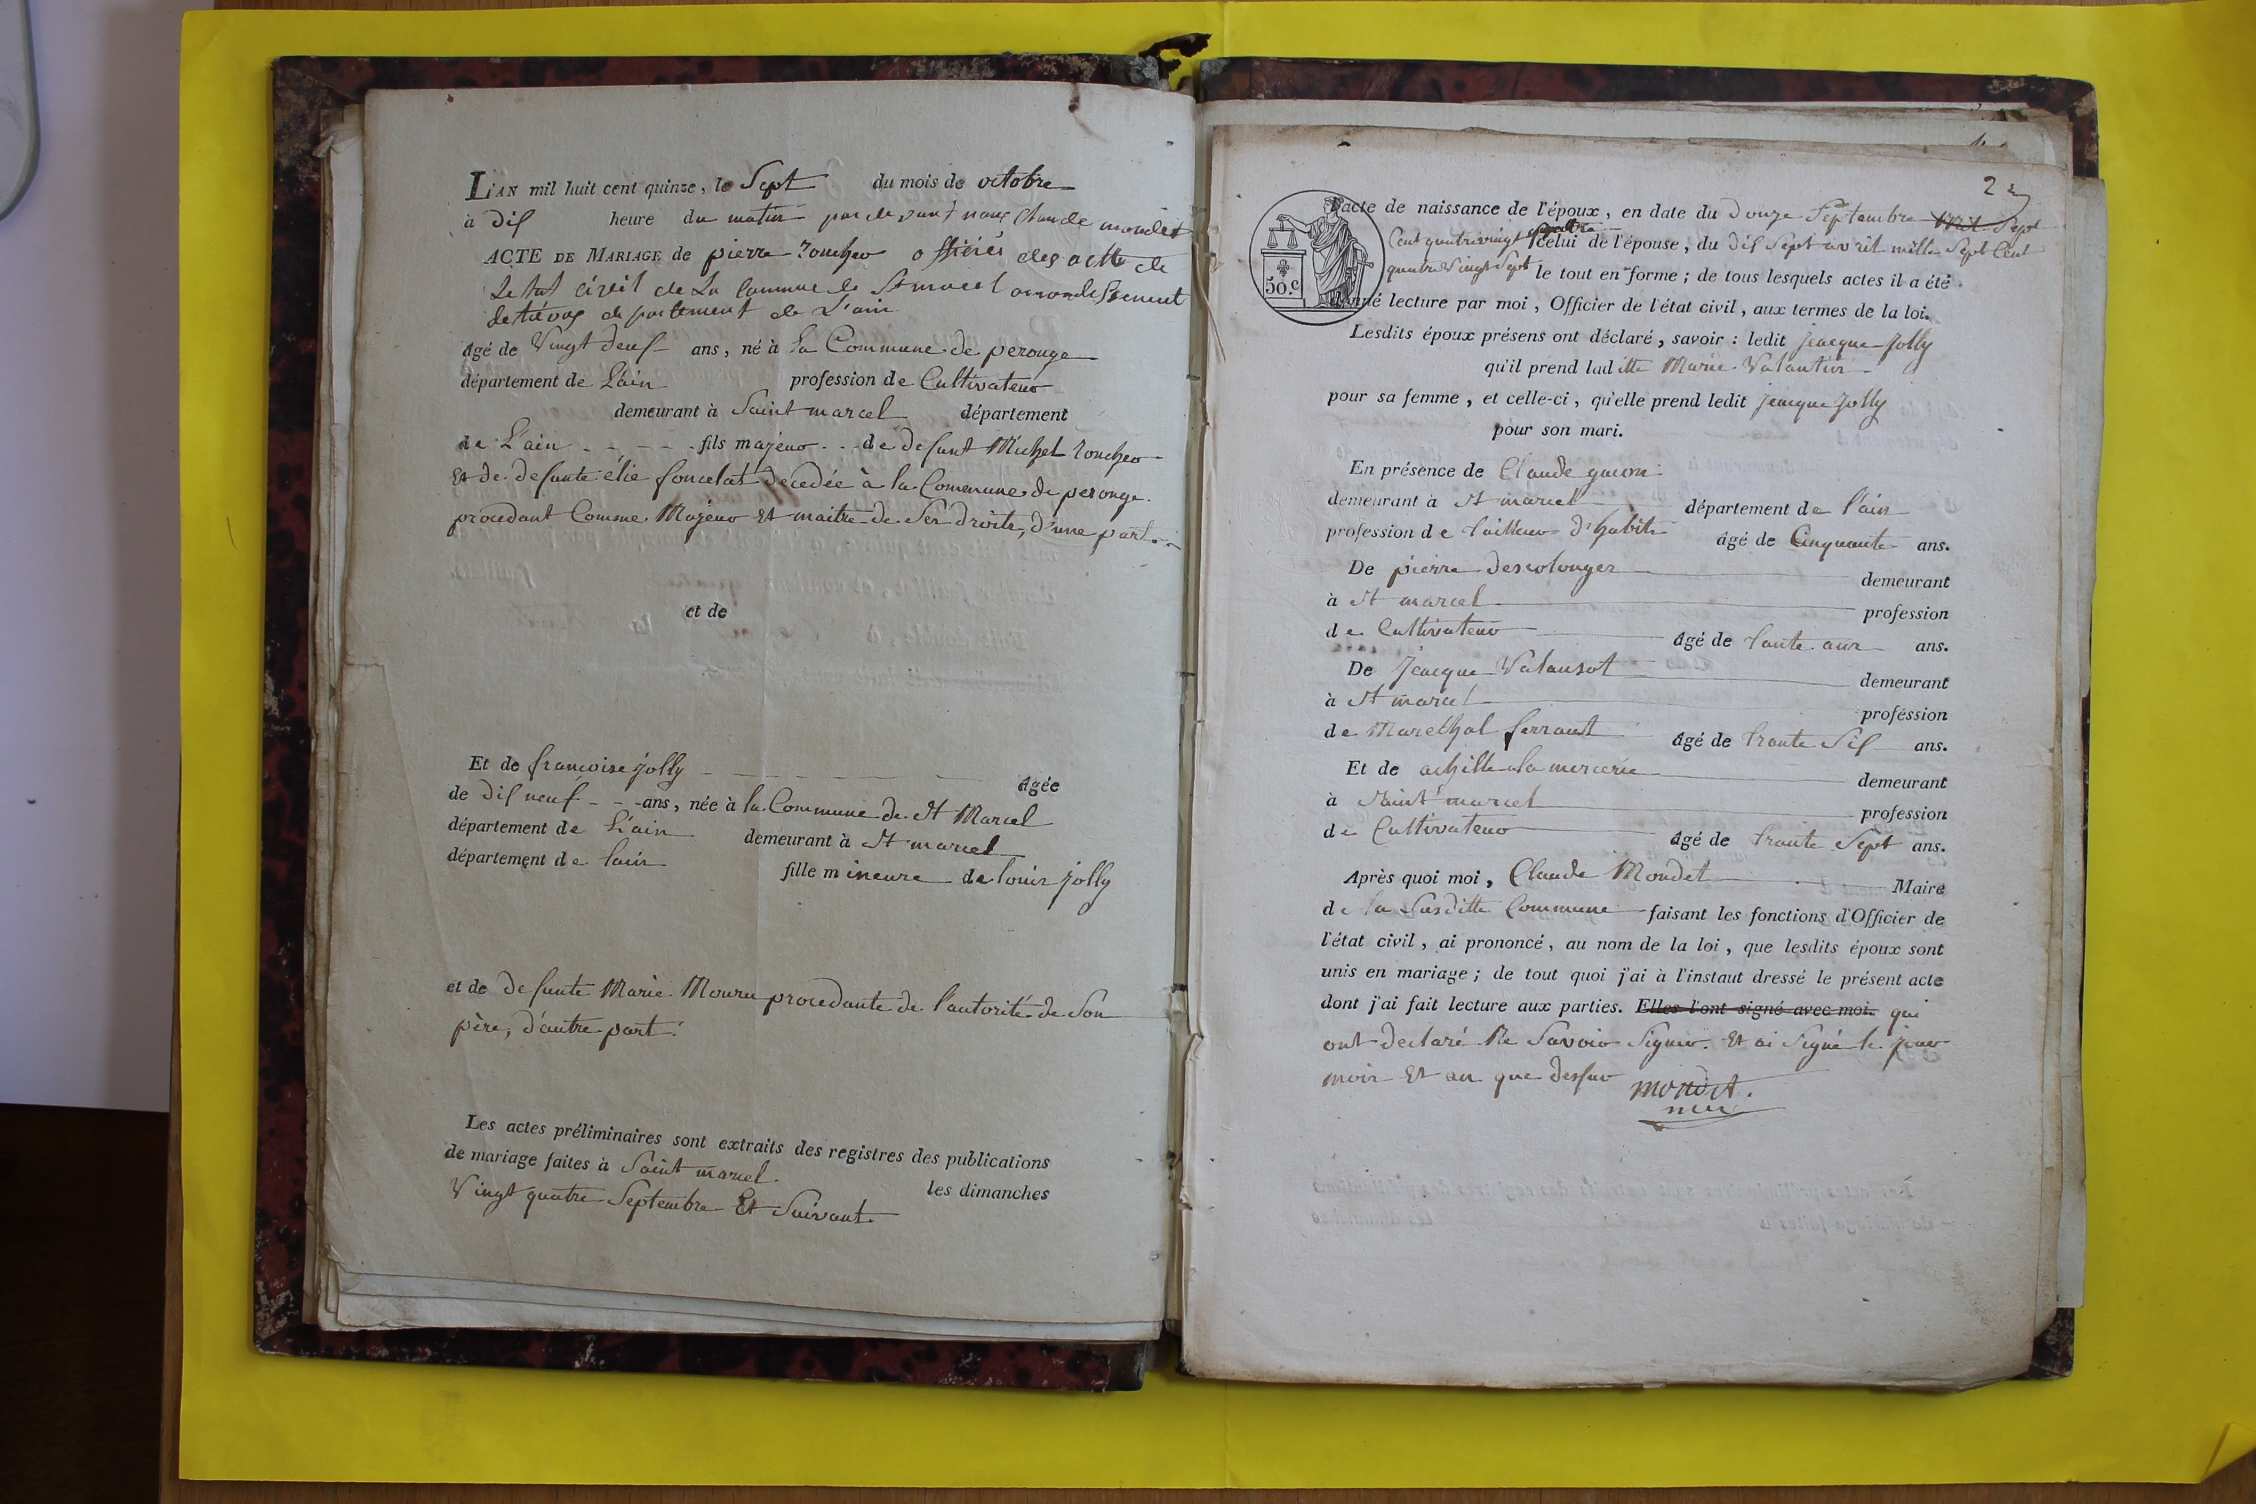 L'AN mil huit cent quinze, le Sept du mois de octobre
à dis heure du matin par de vant nous Claude mondet
ACTE DE MARIAGE de pierre Roncher officiés des actte de
Le tat civil de La Commune de St marcel arrondissement
de trévous departement de L'ain
âgé de Vingt deus ans, né à La Commune de perouge
département de L'ain profession de Cultivateur
demeurant à Saint marcel département
de L'ain fils majeur de defunt Michel Roncher
Et de defunte élie foncelat decedée à la Commune de perouge.
procedant Comme Majeur Et maitre de Ses droits, d'une part.
et de
Et de francoise Jolly âgée
de dis neuf ans, née à la Commune de St Marcel
département de L'ain demeurant à St marcel
département de lain fille mineure de louis Jolly
et de defunte Marie Mouru procedante de l'autorité de Son
père, d'autre part.
Les actes préliminaires sont extraits des registres des publications
de mariage faites à Saint marcel. les dimanches
Vingt quatre Septembre Et Suivant.
2
l'acte de naissance de l'époux, en date du Douze Septembre Mil Sept
Cent quatrevingt quattre celui de l'épouse, du dis Sept avril mille Sept Cent
quatre Vingt Sept le tout en forme; de tous lesquels actes il a été
donné lecture par moi, Officier de l'état civil, aux termes de la loi.
50.c
Lesdits époux présens ont déclaré, savoir: ledit Jeacque Jolly
qu'il prend laditte Marie Valantin
pour sa femme, et celle-ci, qu'elle prend ledit Jeacque Jolly
pour son mari.
En présence de Claude
demeurant à St marcel département de l'ain
profession de tailleur d'habits âgé de Cinquante ans.
De pierre descolonger demeurant
à St marcel profession
de Cultivateur âgé de ans.
De Jeacque Valansot demeurant
à St marcel profession
de Maréchal ferrant âgé de trante Sis ans.
Et de achille la mercerie demeurant
à Saint marcel profession
de Cultivateur âgé de trante Sept ans.
Après quoi moi, Claude Mondet Maire
de la Susditte Commune faisant les fonctions d'Officier de
l'état civil, ai prononcé, au nom de la loi, que lesdits époux sont
unis en mariage; de tout quoi j'ai à l'instaut dressé le présent acte
dont j'ai fait lecture aux parties. Elles l'ont signé avec moi. qui
ont declaré Ne Savoir Signer. Et ai Signé le jour
mois Et an que dessus
mondet.